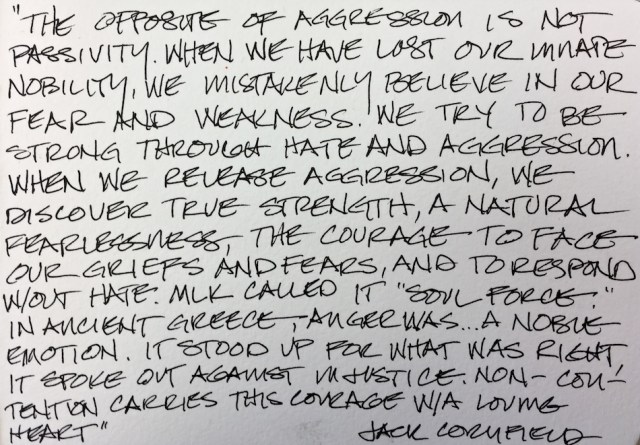 "THE OPPOSITE OF AGGRESSION IS NOT
PASSIVITY. WHEN WE HAVE LOST OUR INNATE
NOBILITY, WE MISTAKENLY BELIEVE IN OUR
FEAR AND WEAKNESS. WE TRY TO BE
STRONG THROUGH HATE AND AGGRESSION.
WHEN WE RELEASE AGGRESSION, WE
DISCOVER TRUE STRENGTH, A NATURAL
FEARLESSNESS, THE COURAGE TO FACE
OUR GRIEFS AND FEARS, AND TO RESPOND
W/OUT HATE. MLK CALLED IT "SOUL FORCE."
IN ANCIENT GREECE, ANGER WAS... A NOBLE
EMOTION. IT STOOD UP FOR WHAT WAS RIGHT,
IT SPOKE OUT AGAINST INJUSTICE. NON-CON-
TENTION CARRIES THIS COURAGE W/A LOVING
HEART" JACK CORNFIELD